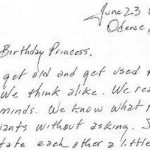 June 23
Odense,
Birthday Princess,
get old and get used
We think alike. We rea
minds. We know what
ants without asking. S
tate each other a little